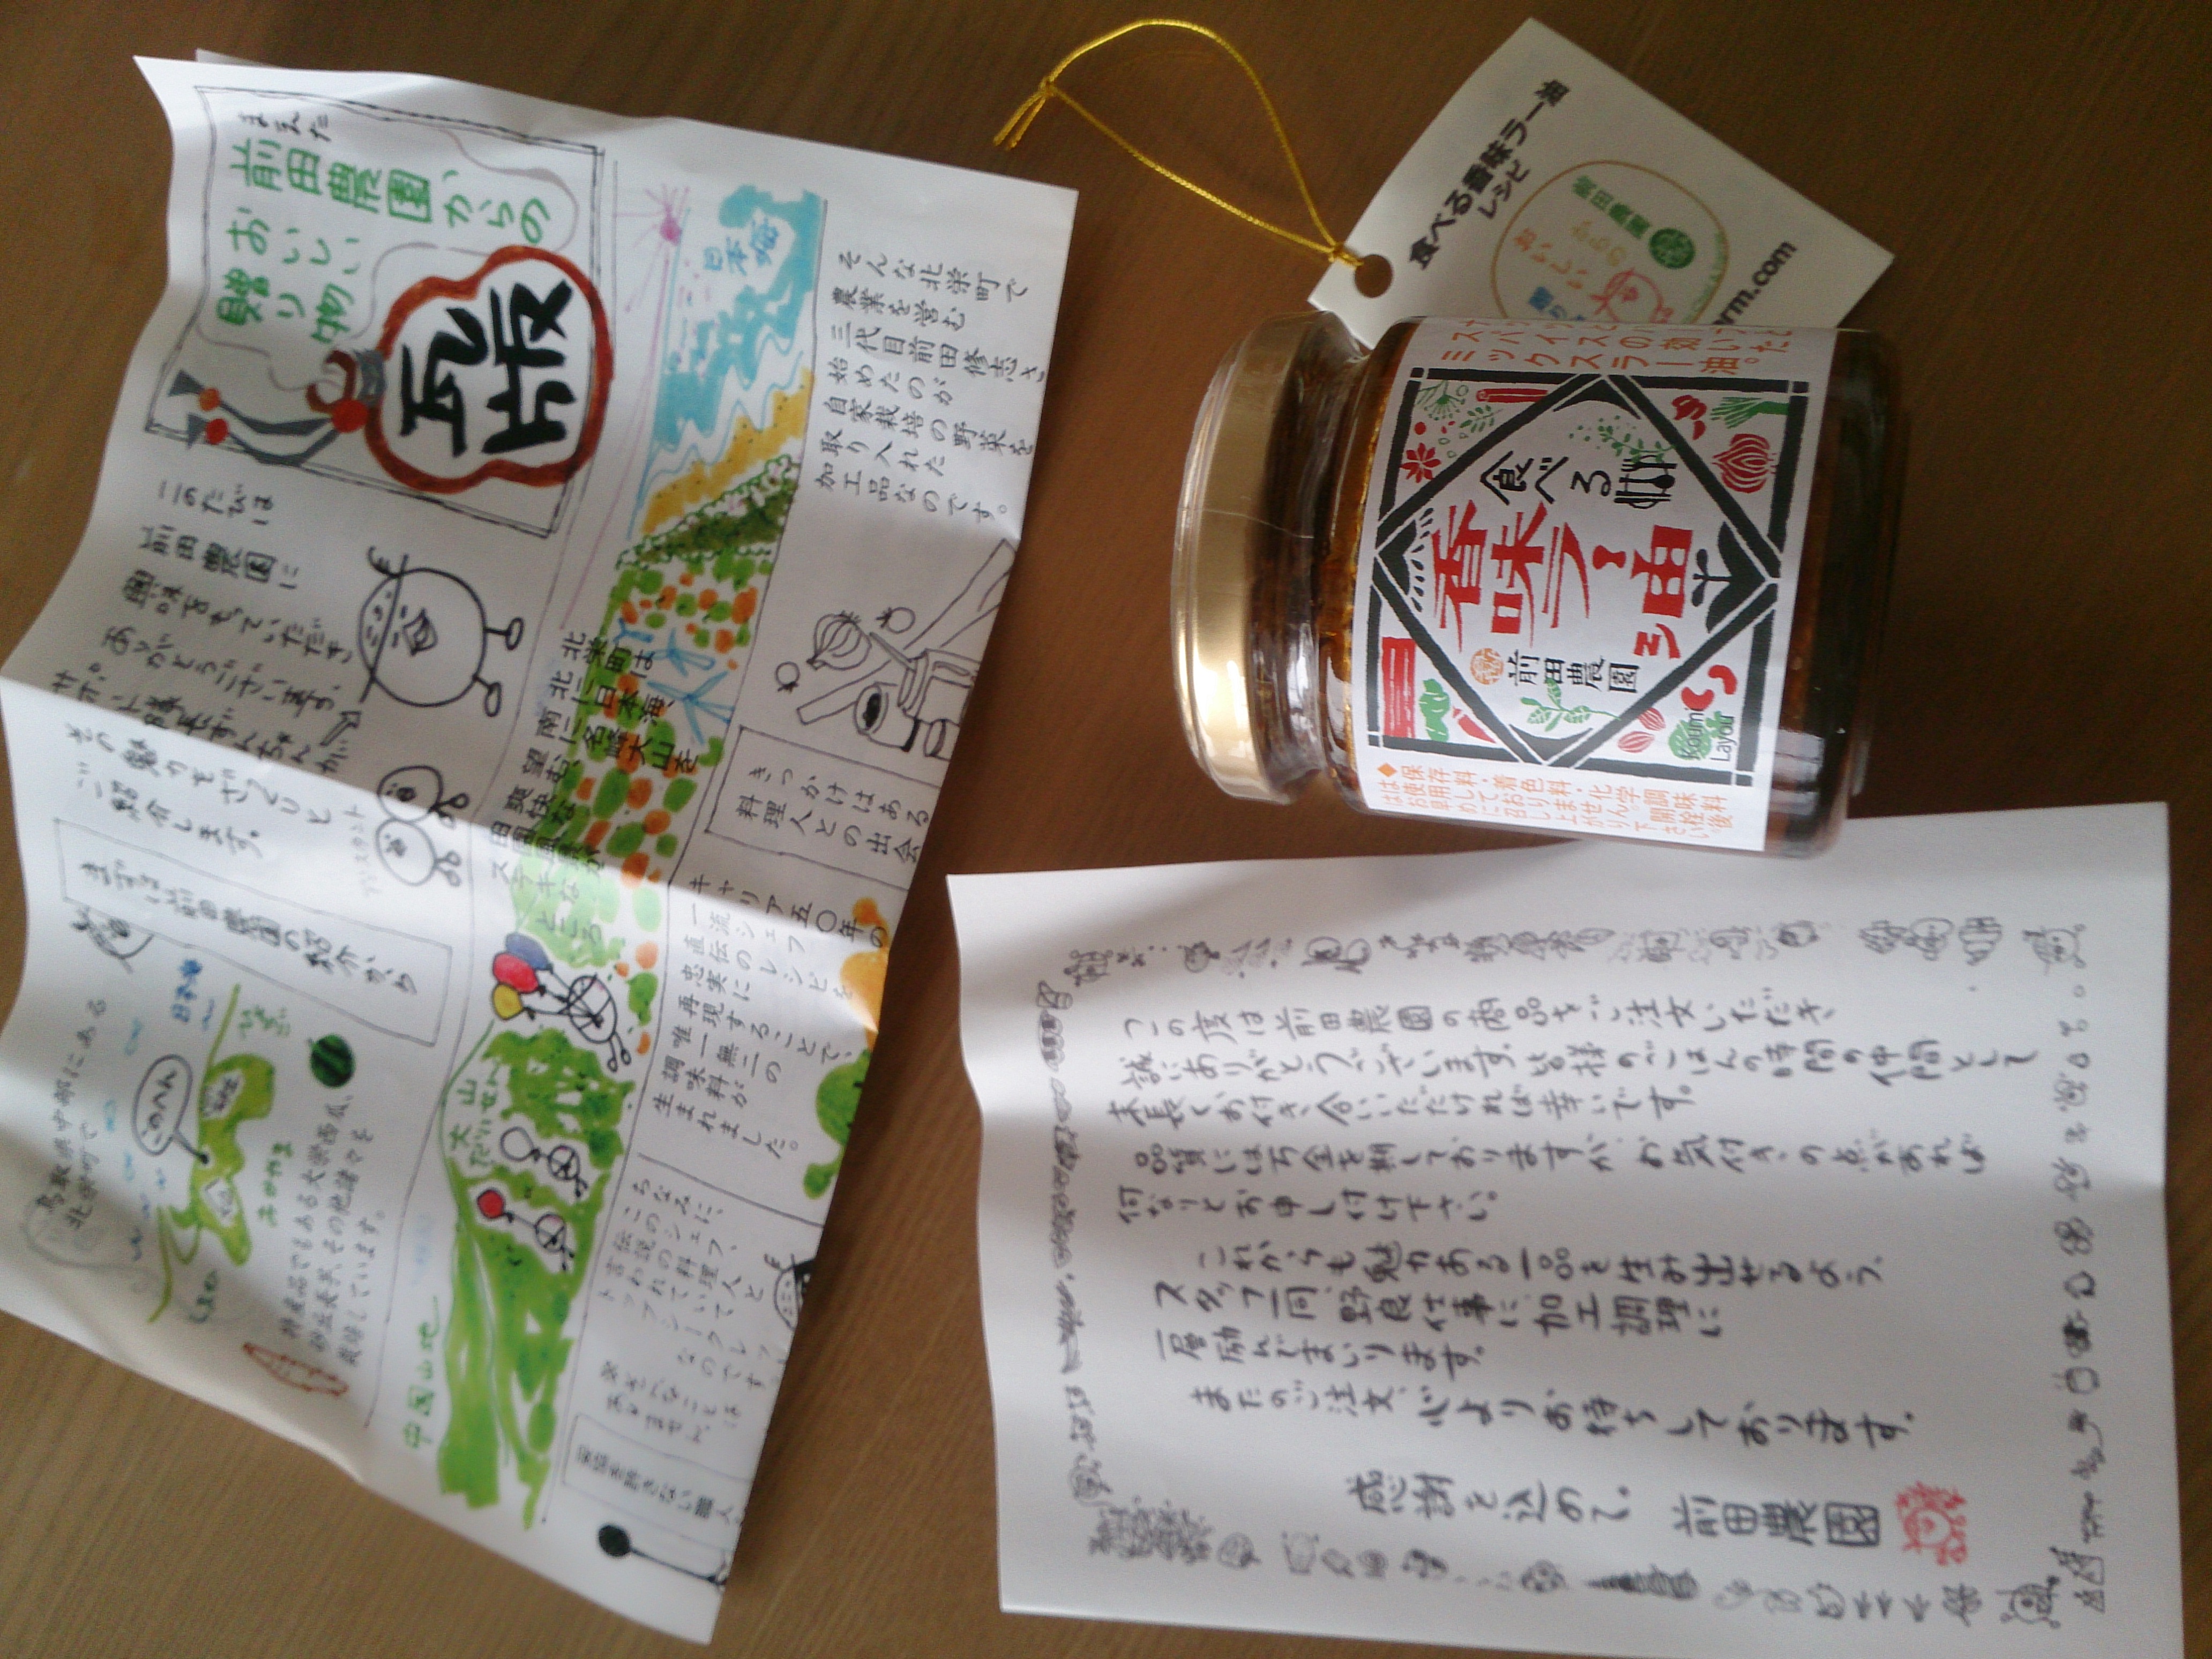 まえだ
前田農園からの
おいしい
贈り物、
瓦版
このたびは
前田農園に
興味をもっていただき
ありがとうございます。
その魅力をざっくりと
ご紹介します。
まずは前田農園の紹介から
鳥取県中部にある
北栄町で
特産品でもある大栄西瓜、
砂丘長芋、その他諸々を
栽培しています。
日本海
このへん
おかやま
日本海
北栄町は
北に日本海、
南に名峰大山を
望む、爽快な
田園風景が
ステキな
ところ
大山
だいせん
中国山地
そんな北栄町で
農業を営む
三代目前田修志さ
始めたのが
自家栽培の野菜を
取り入れた
加工品なのです。
きっかけはある
料理人との出会
キャリア五〇年の
一流シェフ
直伝のレシピを
忠実に
再現することで、
唯一無二の
調味料が
生まれました。
ちなみに、
このシェフ、
伝説の料理人と
言われていて
トップシークレット
なのです
食べる香味ラー油
レシピ
前田農園
からの
おいしい
rm.com
スパイスの効いた
ミックスラー油。
食べる
香味ラー油
前田農園
Koumi
Layou
◆保存料・着色料・化学調味料
この度は前田農園の商品をご注文いただき、
誠にありがとうございます。皆様のごはんの時間の仲間として
末長くお付き合いいただければ幸いです。
品質には万全を期しておりますが、お気付きの点があれば
何なりとお申し付け下さい。
これからも魅力ある一品を生み出せるよう、
スタッフ一同、野良仕事に加工調理に
一層励んでまいります。
またのご注文、心よりお待ちしております。
感謝を込めて。
前田農園